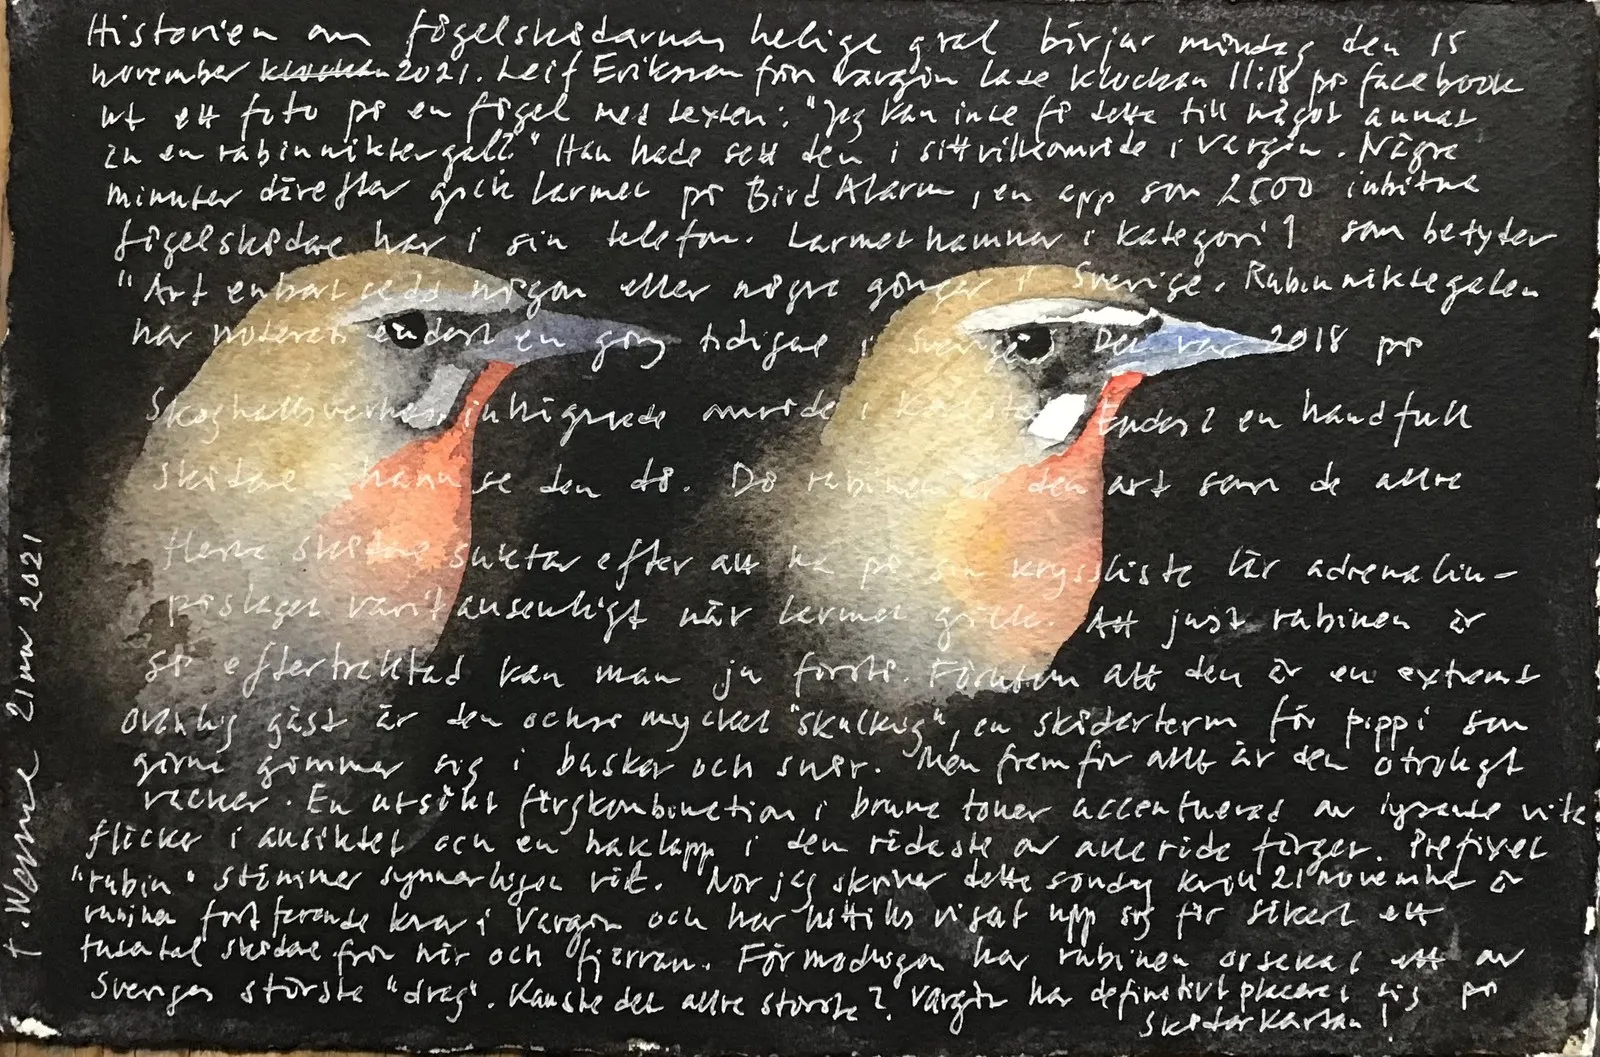 Historien om fågelskådarnas helige gral börjar måndag den 15
november klockan 2021. Leif Eriksson från Vargön lade klockan 11:18 på facebook
ut ett foto på en fågel med texten: "Jag kan inte få detta till något annat
än en rubinnäktergal." Han hade sett den i sitt villaområde i Vargön. Några
minuter därefter gick larmet på Bird Alarm, en app som 2500 inbitna
fågelskådare har i sin telefon. Larmet hamnar i kategori 1 som betyder
"Art enbart sedd någon eller några gånger i Sverige. Rubinnäktergalen
har noterats endast en gång tidigare i Sverige. Det var 2018 på
Skoghallsverkens inhägnade område i Endast en handfull
skådare hann se den då. Då rubinen är den art som de allra
flesta skådare suktar efter att ha på sin krysslista lär adrenalin-
påslaget varit ansenligt när larmet gick. Att just rubinen är
så eftertraktad kan man ju förstå. Förutom att den är en extremt
ovanlig gäst är den också mycket "skulkig", en skådarterm för pippi som
gärna gömmer sig i buskar och snår. Men framför allt är den otroligt
vacker. En utsökt färgkombination i bruna toner accentuerad av lysande vita
fläckar i ansiktet och en haklapp i den rödaste av alla röda färger. Prefixet
"rubin" stämmer synnerligen väl. När jag skriver detta söndag kväll 21 november är
rubinen fortfarande kvar i Vargön och har hittills visat upp sig för säkert ett
tusental skådare från när och fjärran. Förmodligen har rubinen orsakat ett av
Sveriges största "drag". Kanske det allra största? Vargön har definitivt placerat sig på
skådarkartan!
T. Warne 21 nov 2021